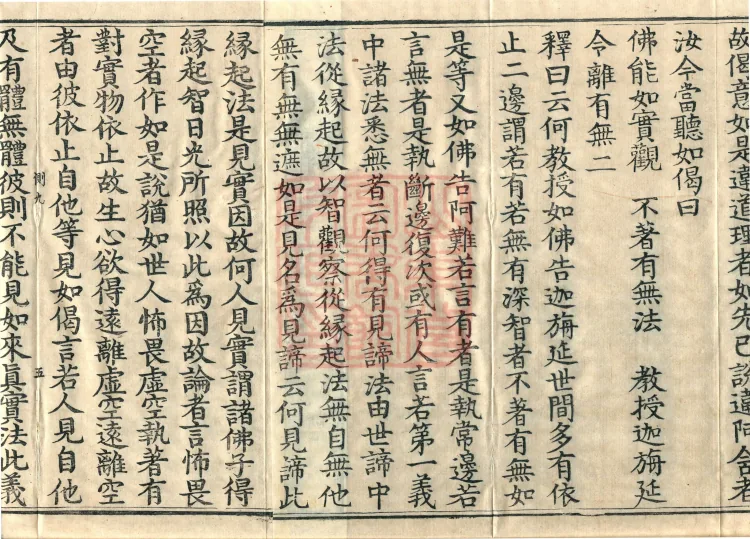 故偈意如是違道理者如先已說違阿含者
汝今當聽如偈曰
佛能如實觀　不著有無法　教授迦旃延
令離有無二
釋曰云何教授如佛告迦旃延世間多有依
止二邊謂若有若無有深智者不著有無如
是等又如佛告阿難若言有者是執常邊若
言無者是執斷邊復次或有人言若第一義
中諸法悉無者云何得有見諦法由世諦中
法從緣起故以智觀察從緣起法無自無他
無有無無遮如是見名為見諦云何見諦此
緣起法是見實因故何人見實謂諸佛子得
緣起智日光所照以此為因故論者言怖畏
空者作如是說猶如世人怖畏虛空執著有
對實物依止故生心欲得遠離虛空遠離空
者由彼依止自他等見如偈言若人見自他
惻九　五
及有體無體彼則不能見如來真實法此義